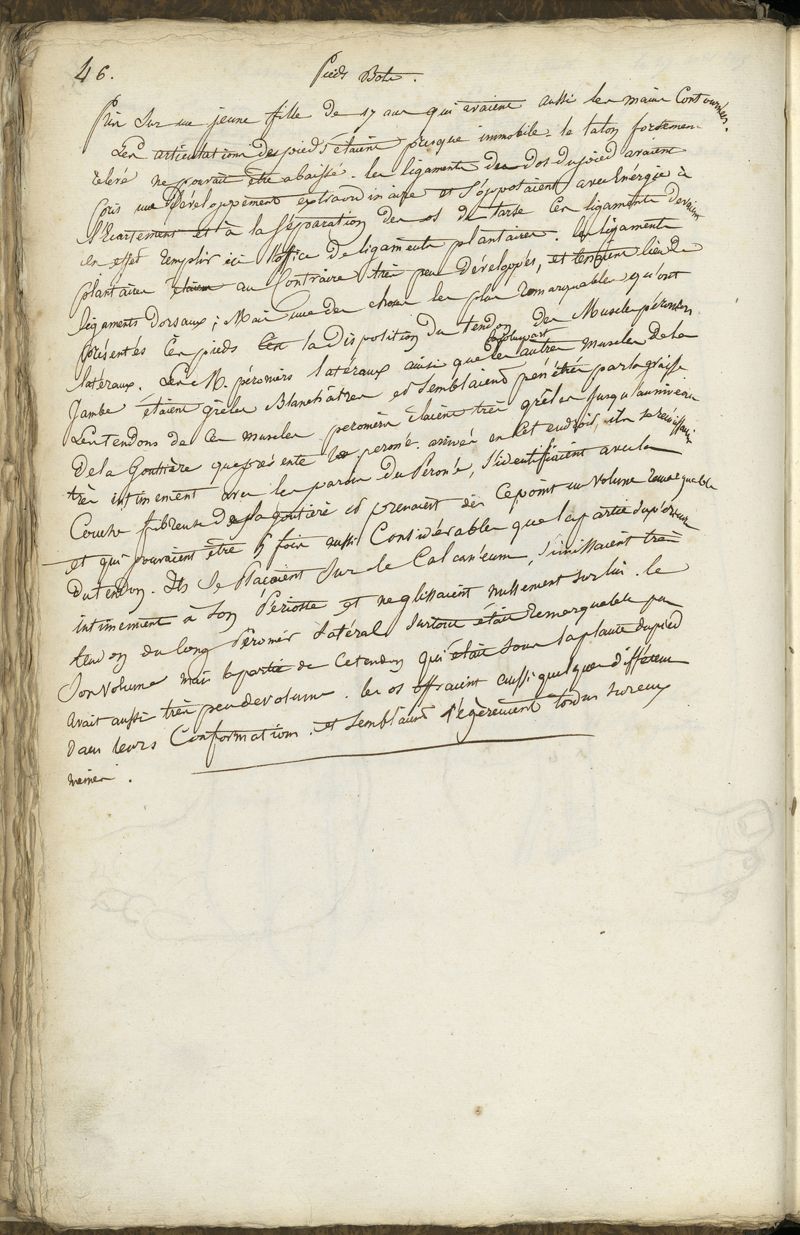 46. Pieds Bots.
Pris sur une jeune fille de 17 ans qui avaient aussi les mains Contournées.
Les articulations des pieds étaient presque immobiles. le talon fortement
relevé ne pouvait être abaissé. les ligaments du dos du pied avaient
pris un développement extraordinaire et s'opposaient avec Energie à
l'Ecartement et à la séparation des os du tarse Ces ligaments devaient
en effet remplir ici l'office de ligaments plantaires. les ligaments
plantaires étaient au Contraire très peu développés, et tenaient lieu de
ligaments Dorsaux; Mais une des choses les plus remarquables qu'ont
présentés Ces pieds la Disposition du tendon des Muscles péroniers
latéraux. Les M. péroniers latéraux ainsi que la plupart des autres muscles de la
Jambe étaient grêles Blanchâtres et semblaient pénétrés par la graisse
Les tendons de Ces muscles péroniers étaient très grêles jusqu'au niveau
de la Gouttière que présente le peroné. arrivés en Cet endroit, ils se réunissaient
très intimement avec les parois du Peroné, s'identifiaient avec la
Couche fibreuse de la goutière et prenaient dès Ce point un volume remarquable
et qui pouvaient être 5 fois aussi Considérables que la partie supérieure
du tendon. Ils se plaçaient sur le Calcanéum, s'unissaient très
intimement à son Périoste et ne glissaient nullement sur lui. le
tendon du long Peronier latéral surtout était remarquable par
son volume mais la partie de Ce tendon qui était sous la plante du pied
avait aussi très peu de volume. les os offraient aussi quelques différences
dans leurs Conformations. et semblaient légèrement tordus sur eux
mêmes.